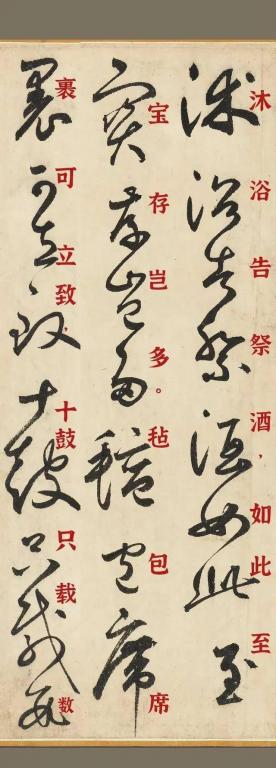 沐浴告祭酒，如此至
宝存岂多。毡包席
裹可立致，十鼓只载数